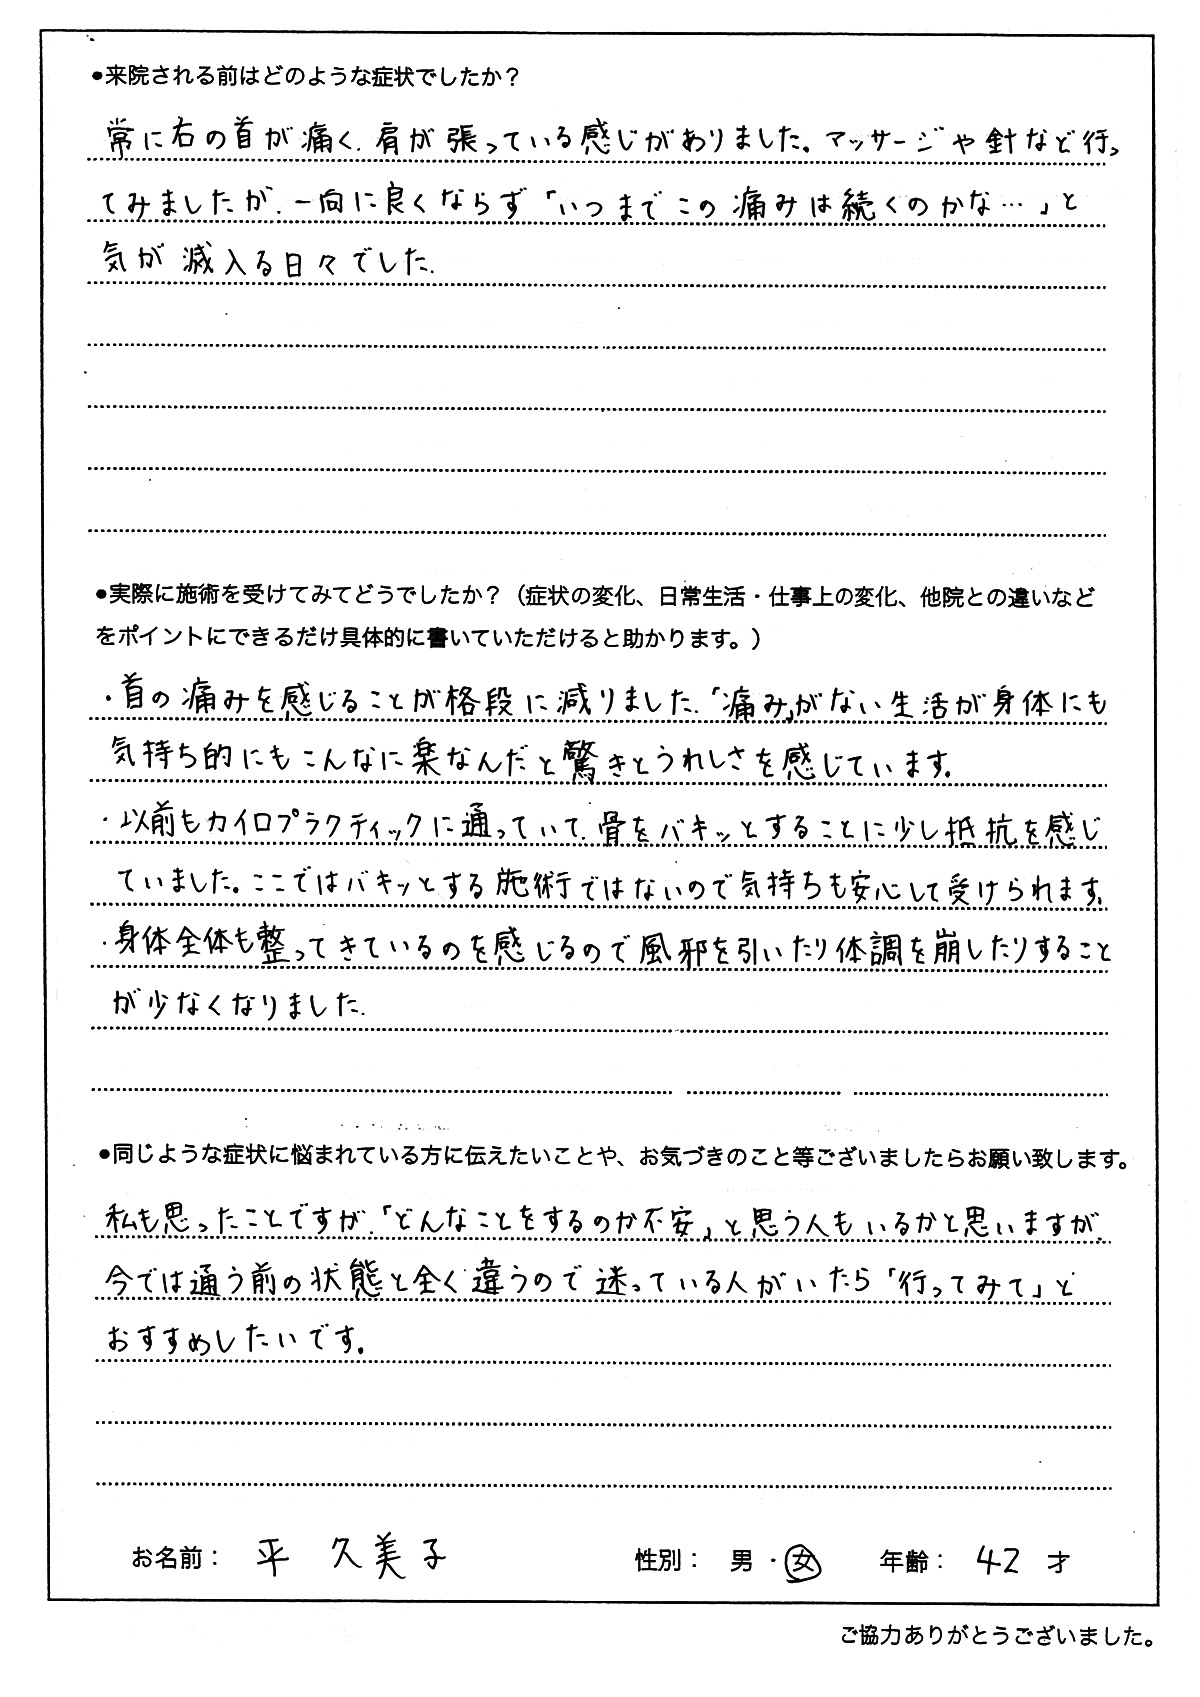 ●来院される前はどのような症状でしたか？
常に右の首が痛く、肩が張っている感じがありました。マッサージや針など行っ
てみましたが、一向に良くならず「いつまでこの痛みは続くのかな…」と
気が滅入る日々でした。
●実際に施術を受けてみてどうでしたか？（症状の変化、日常生活・仕事上の変化、他院との違いなど
をポイントにできるだけ具体的に書いていただけると助かります。）
・首の痛みを感じることが格段に減りました。「痛み」がない生活が身体にも
気持ち的にもこんなに楽なんだと驚きとうれしさを感じています。
・以前もカイロプラクティックに通っていて、骨をバキッとすることに少し抵抗を感じ
ていました。ここではバキッとする施術ではないので気持ちも安心して受けられます。
・身体全体も整ってきているのを感じるので風邪を引いたり体調を崩したりすること
が少なくなりました。
●同じような症状に悩まれている方に伝えたいことや、お気づきのこと等ございましたらお願い致します。
私も思ったことですが、「どんなことをするのか不安」と思う人もいるかと思いますが、
今では通う前の状態と全く違うので迷っている人がいたら「行ってみて」と
おすすめしたいです。
お名前： 平 久美子 性別： 男・女 年齢： 42 才
ご協力ありがとうございました。